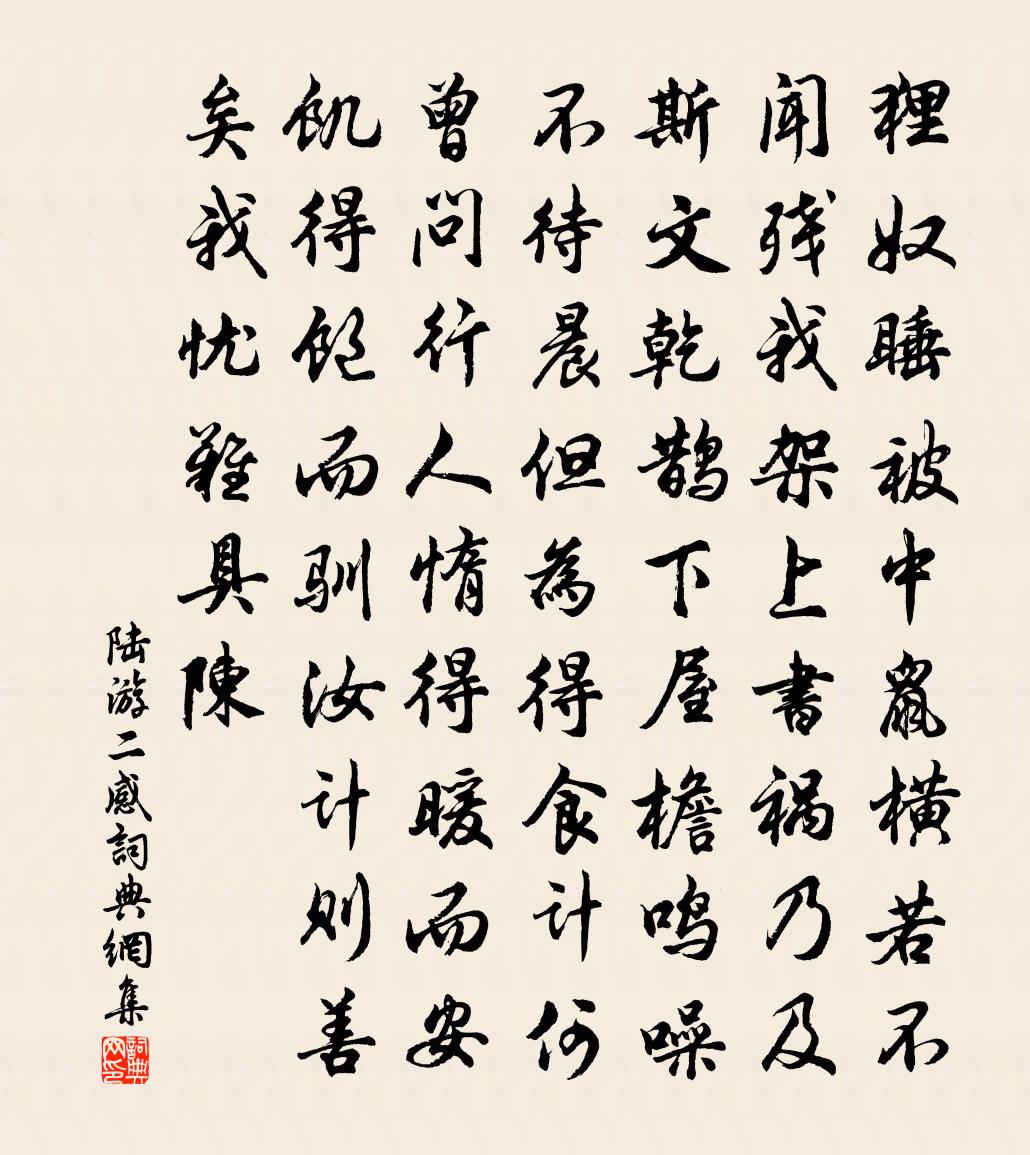 狸奴睡被中鼠横若不
闻残我架上書祸乃及
斯文乾鹊下屋檐鸣噪
不待晨但為得食计何
曾问行人惰得暖而安
飢得飽而驯汝计则善
矣我忧難具陳
陆游二感詞典網集
詞典网印